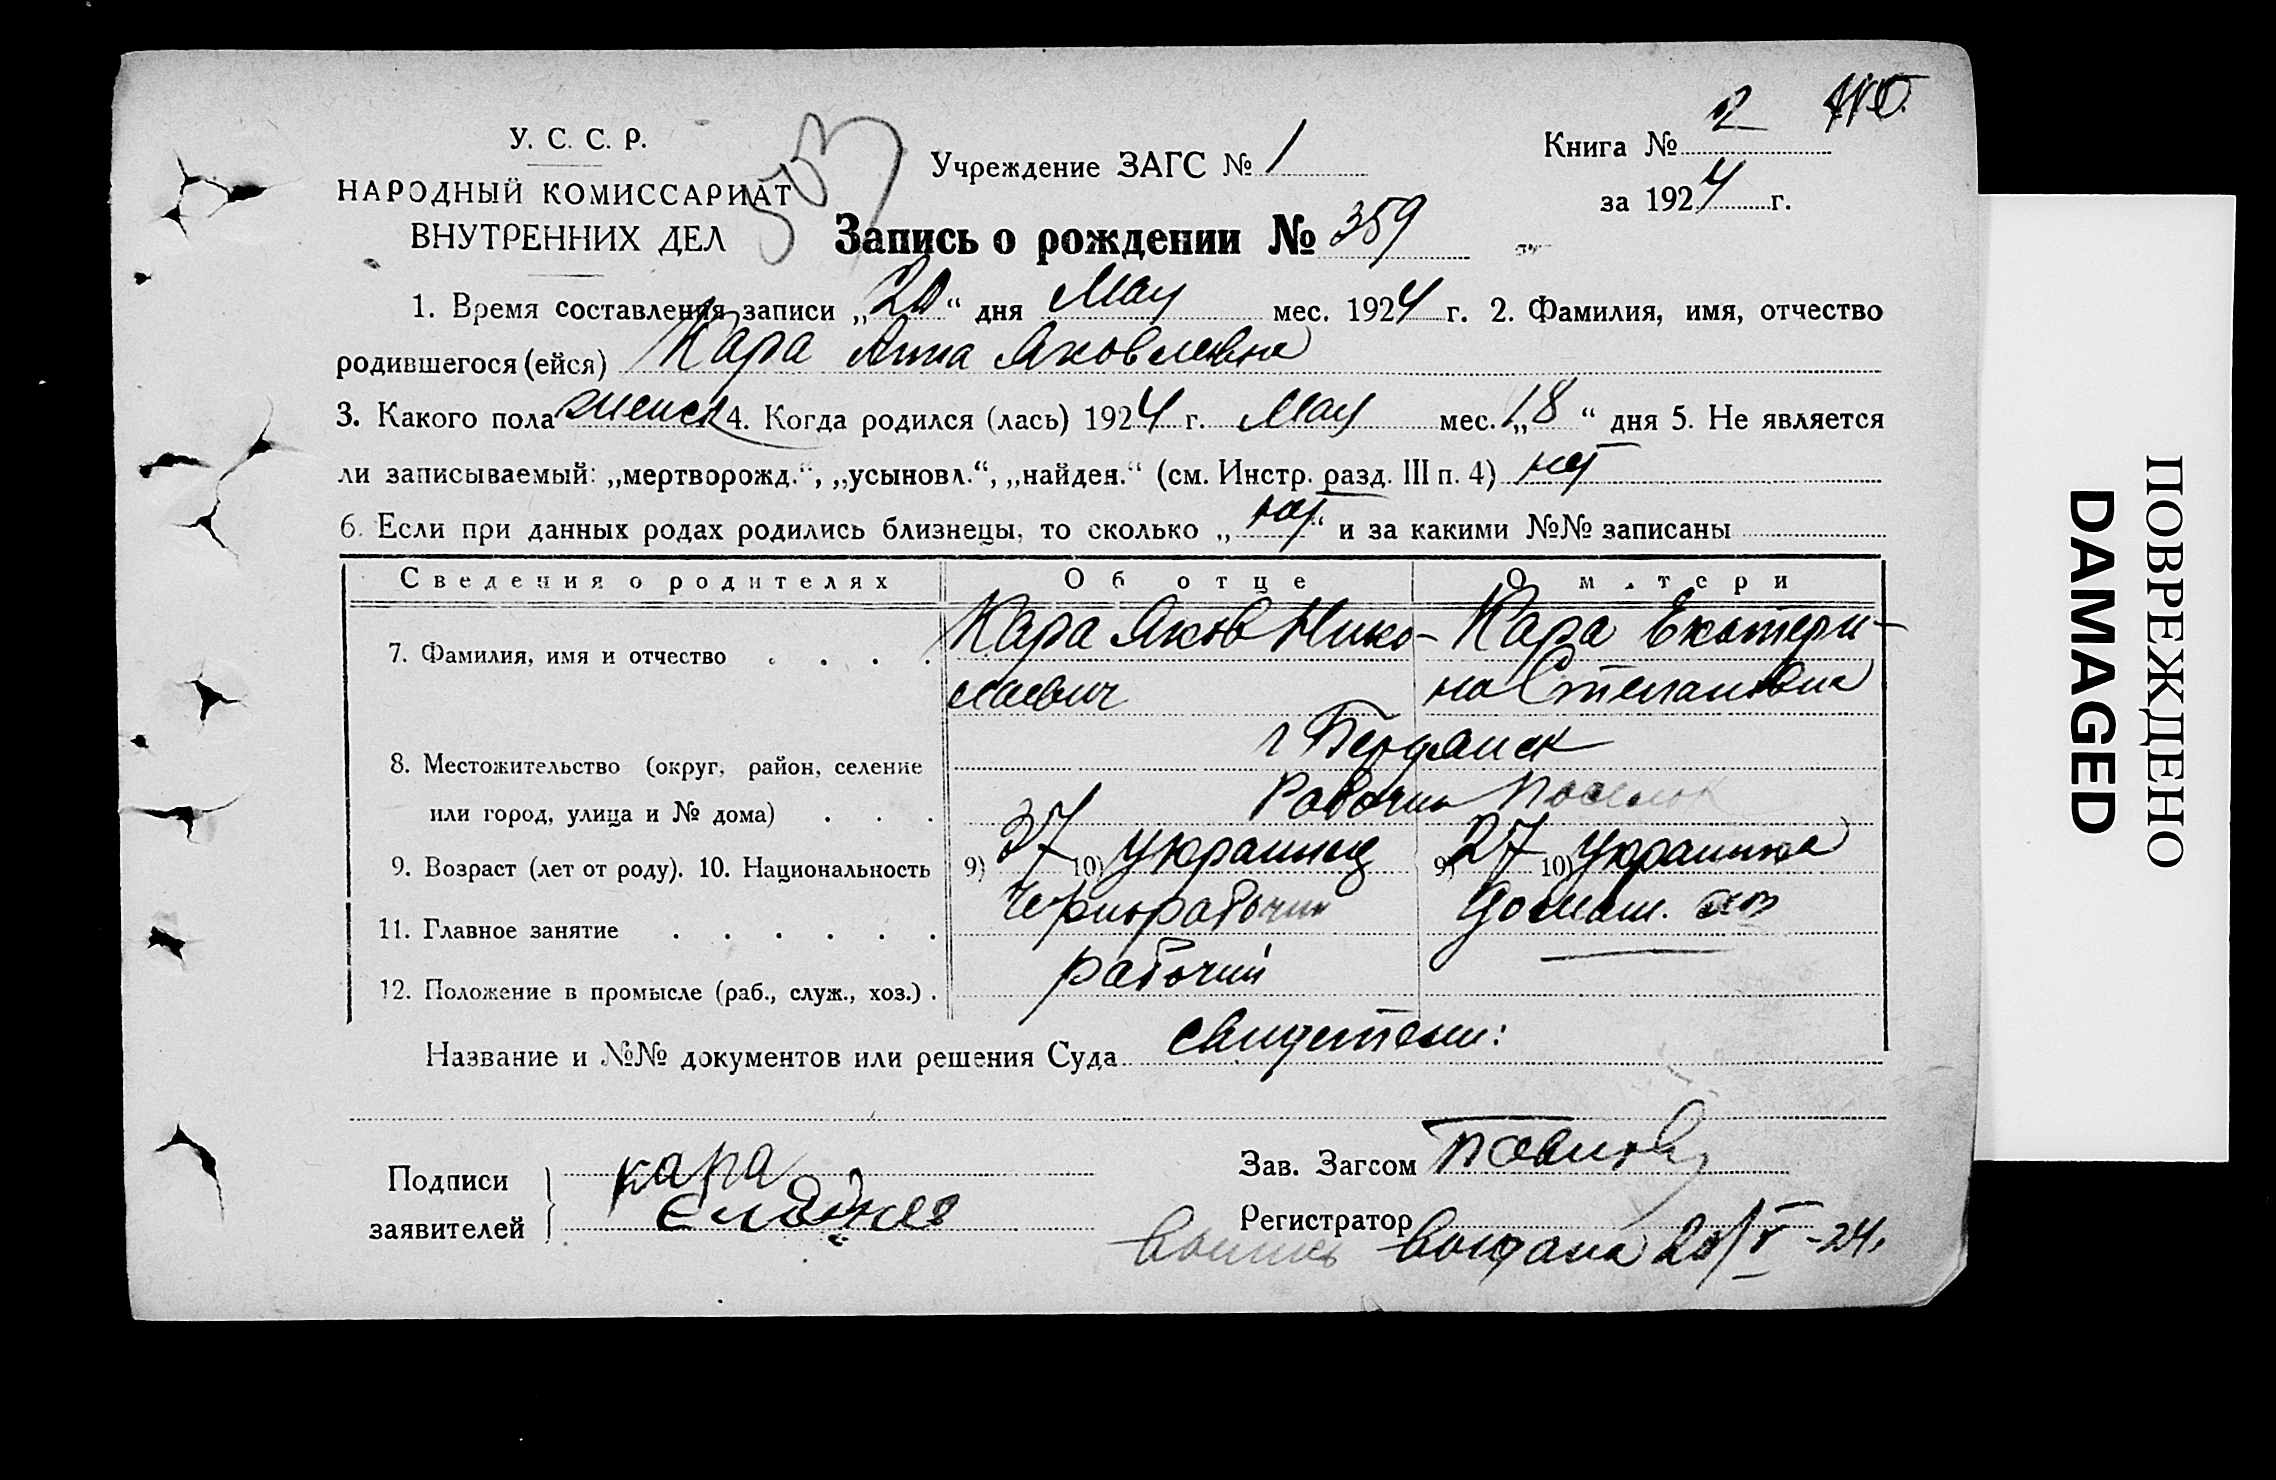 У. С. С. Р.
НАРОДНЫЙ КОМИССАРИАТ
ВНУТРЕННИХ ДЕЛ
Учреждение ЗАГС № 1
Книга № 2
за 1924 г.
Запись о рождении № 359
1. Время составления записи „20“ дня Мая мес. 1924 г. 2. Фамилия, имя, отчество
родившегося (ейся) Кара Анна Яковлевна
3. Какого пола женск 4. Когда родился (лась) 1924 г. Мая мес. „18“ дня 5. Не является
ли записываемый: „мертворожд.“, „усыновл.“, „найден.“ (см. Инстр. разд. III п. 4) нет
6. Если при данных родах родились близнецы, то сколько „нет“ и за какими №№ записаны
Сведения о родителях Об отце О матери
7. Фамилия, имя и отчество . . . . Кара Яков Нико- Кара Екатери-
лаевич на Степановна
г Бердянск
8. Местожительство (округ, район, селение
или город, улица и № дома) . . . Рабочий поселок
9. Возраст (лет от роду). 10. Национальность 9) 37 10) украинец 9) 27 10) украинка
11. Главное занятие . . . . . . Чернорабочий домаш. хоз
12. Положение в промысле (раб., служ., хоз.) . рабочий
Название и №№ документов или решения Суда свидетели:
Подписи
заявителей
кара
Зав. Загсом
Регистратор
выпись выдана 20/V-24.
ПОВРЕЖДЕНО
DAMAGED